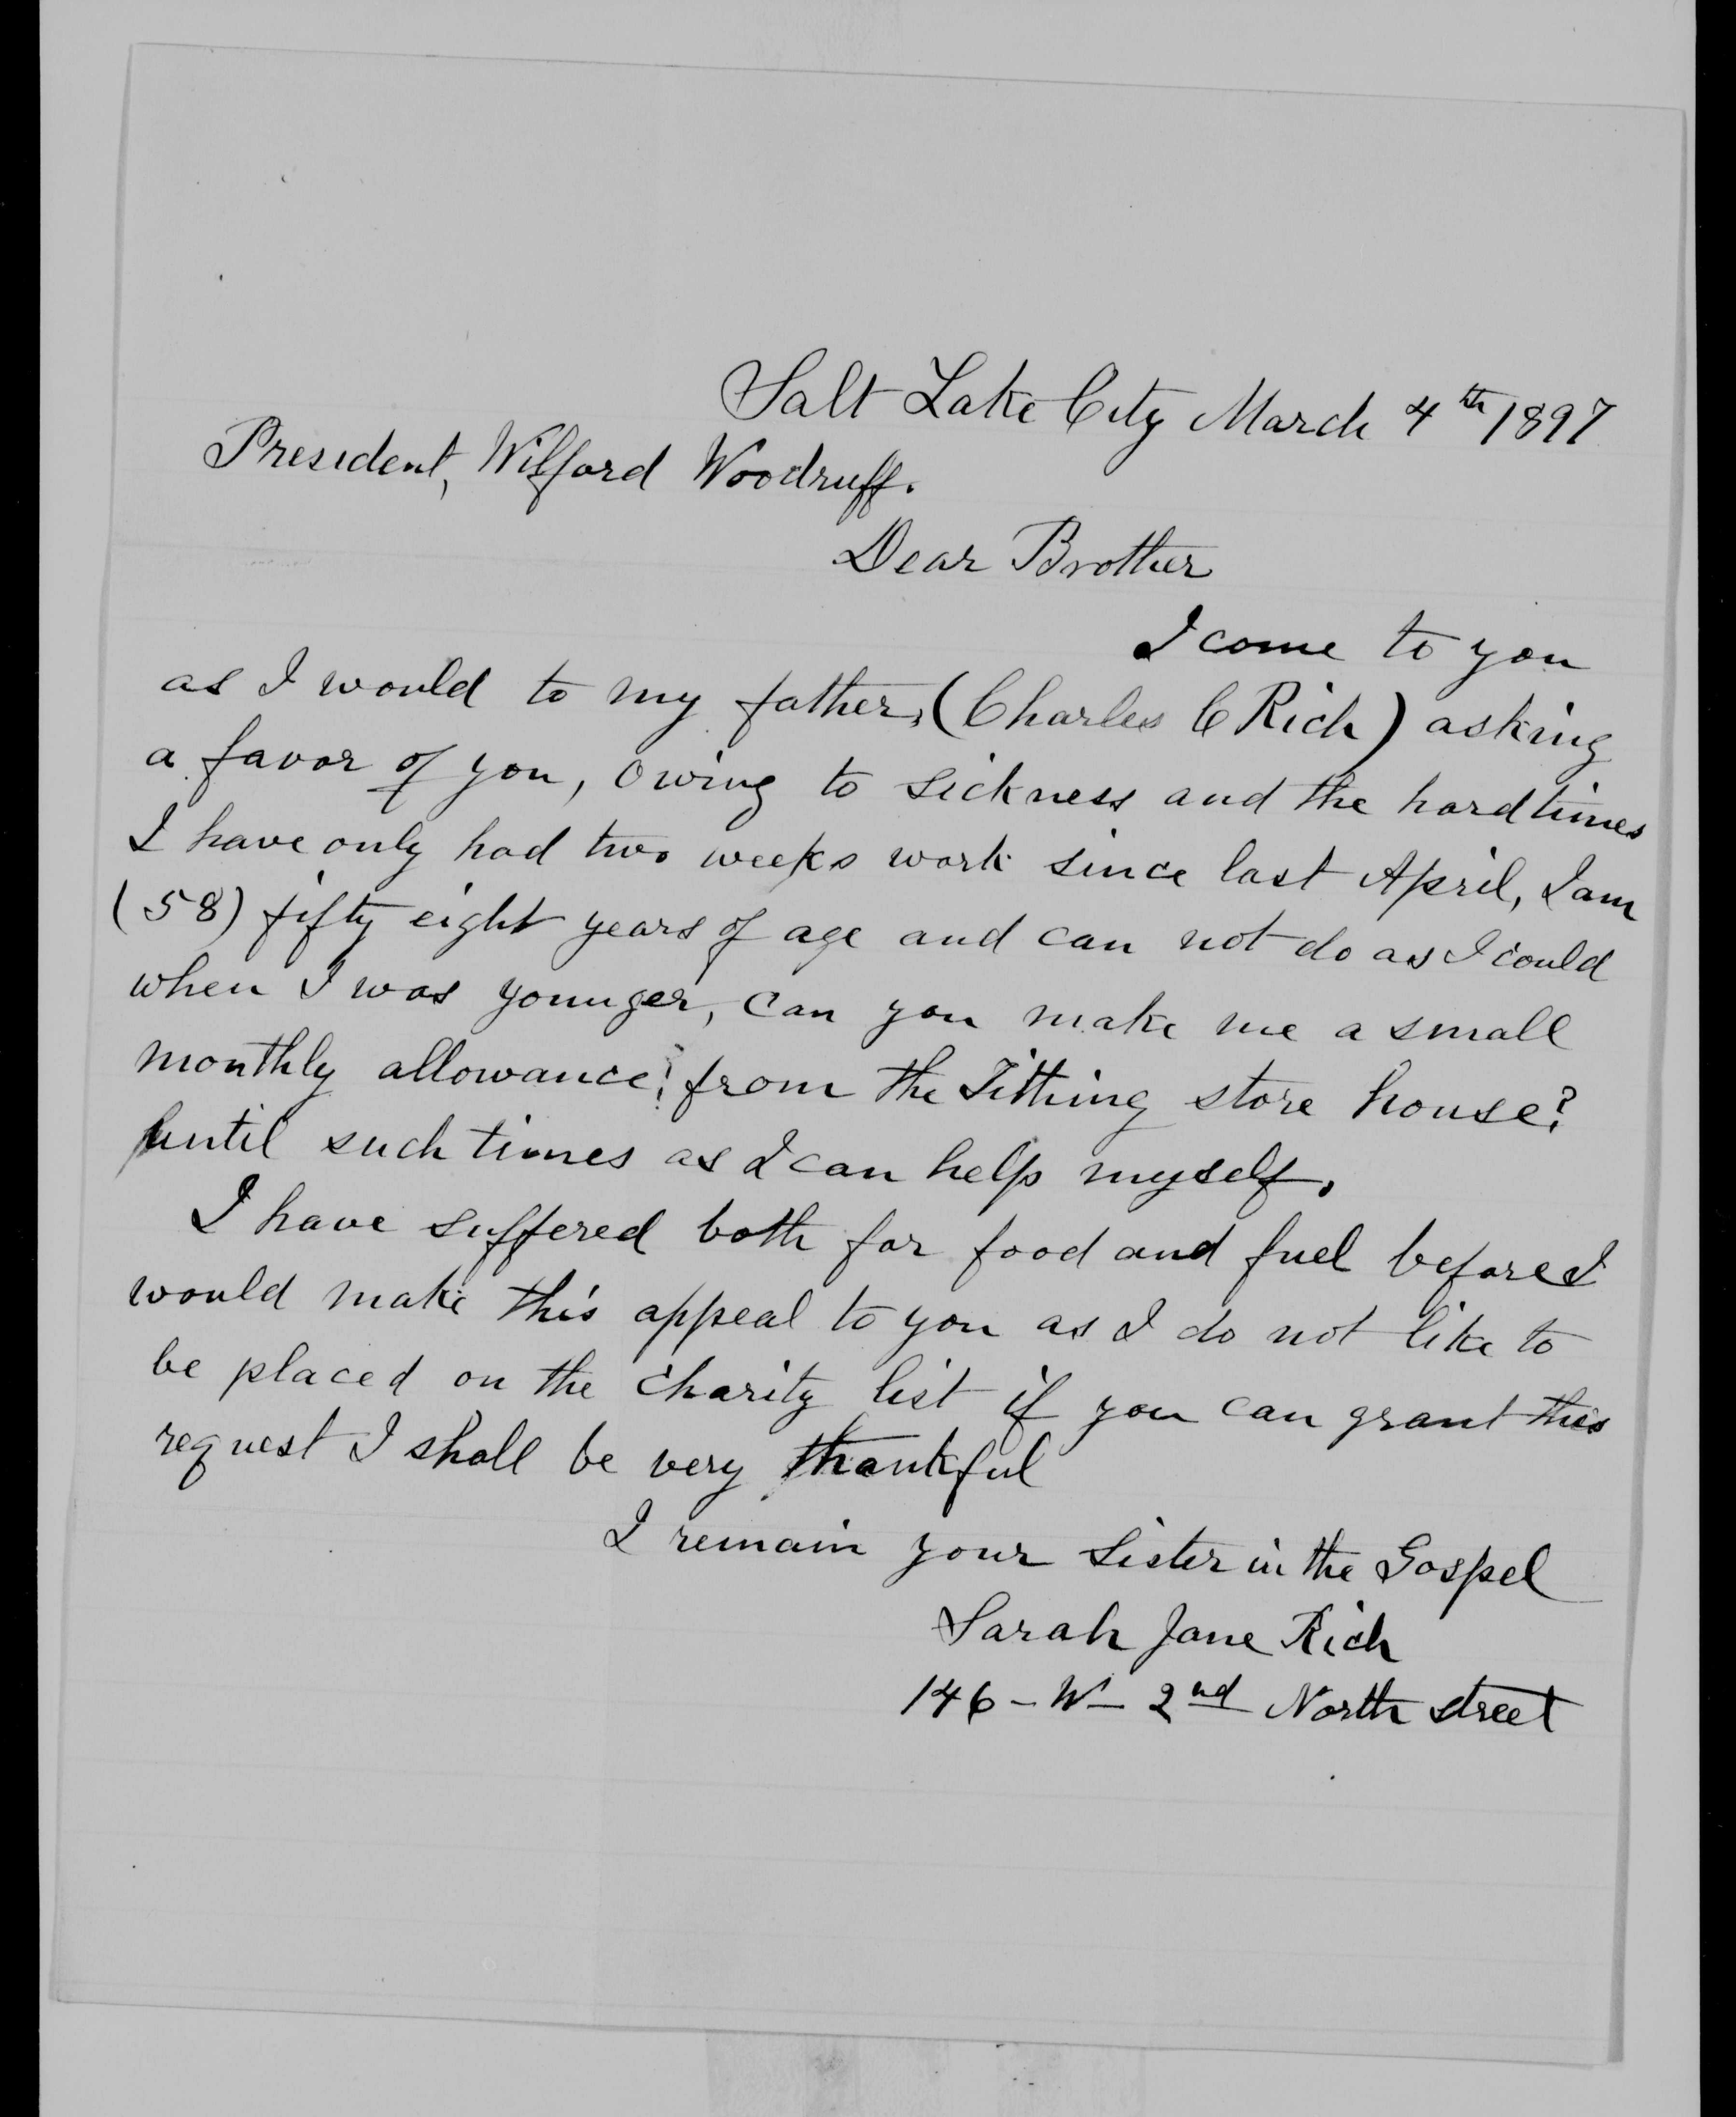 Salt Lake City March 4th 1897
President, Wilford Woodruff.
Dear Brother
I come to you
as I would to my father, (Charles C Rich) asking
a favor of you, Owing to sickness and the hard times
I have only had two weeks work since last April, I am
(58) fifty eight years of age and can not do as I could
when I was younger, Can you make me a small
monthly allowance? from the Tithing store house?
until such times as I can help myself.
I have suffered both for food and fuel before I
would make this appeal to you as I do not like to
be placed on the charity list if you can grant this
request I shall be very thankful
I remain your sister in the Gospel
Sarah Jane Rich
146 - W - 2nd North street